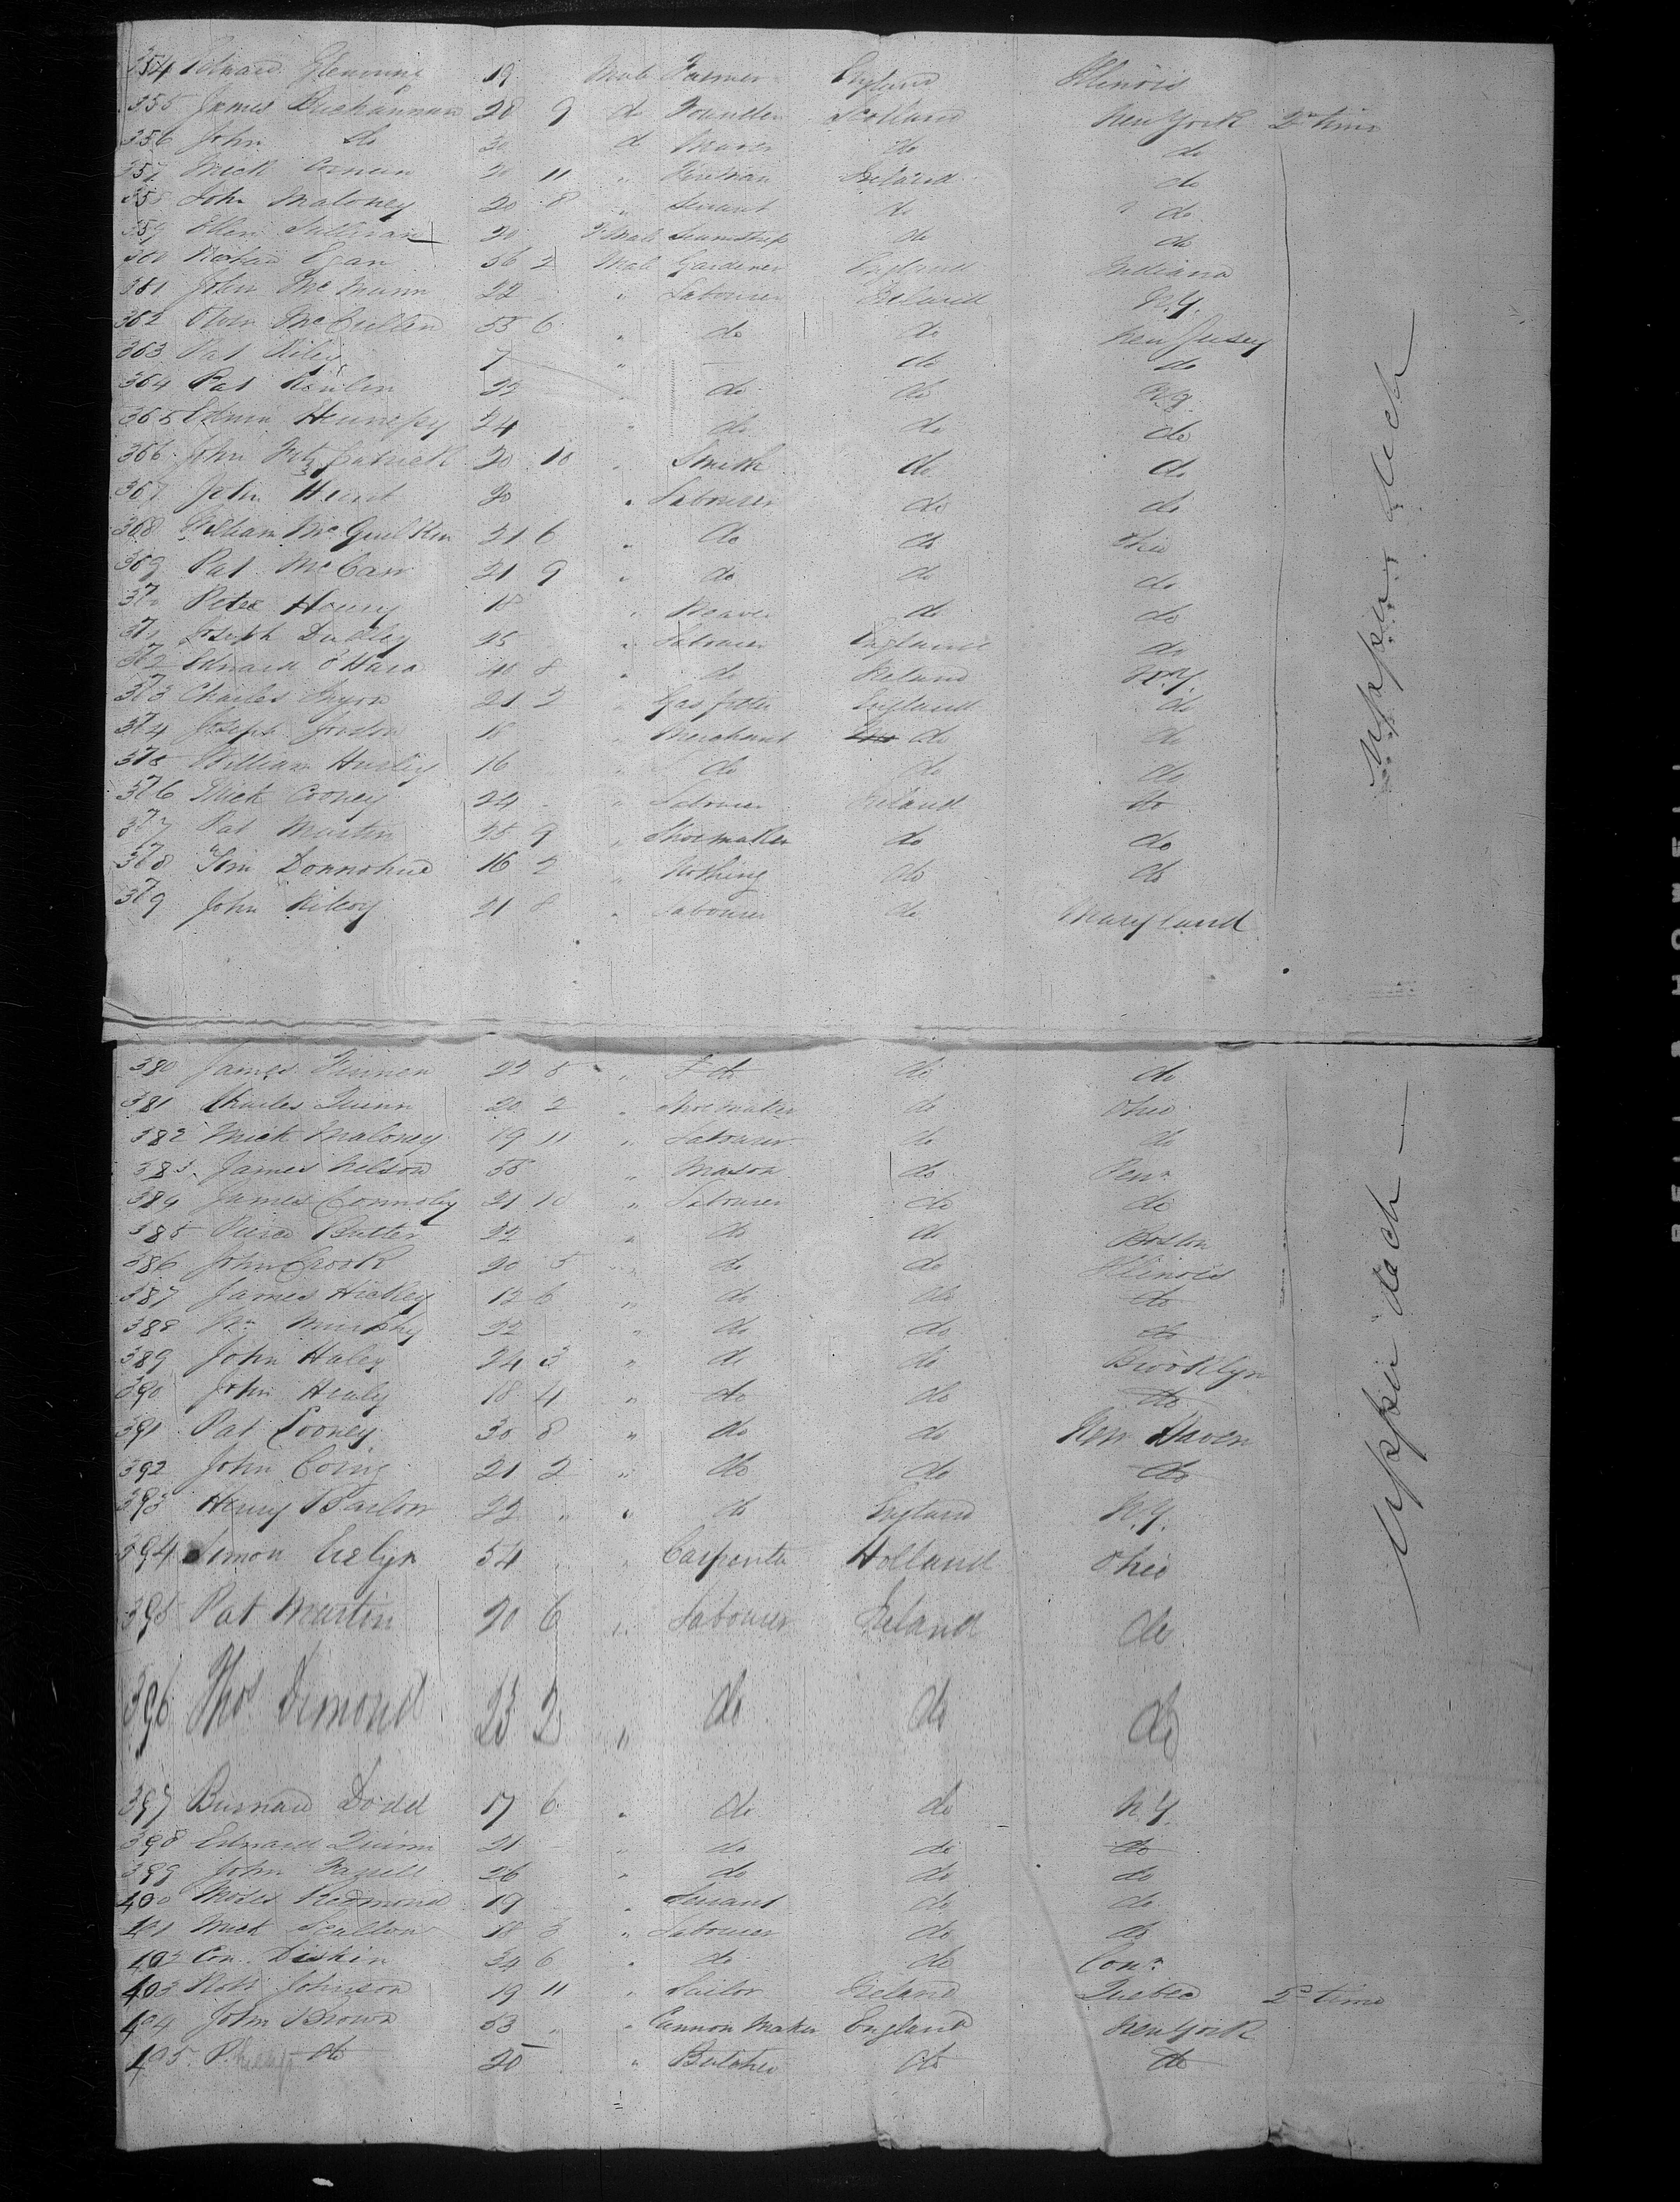 354 Edward Glenning 19 Male Farmer England Illinois
355 James Buchannan 28 9 do Founder Scotland New York 2d time
356 John do 30 do do do
357 Mick 20 11 " Ireland do
358 John Maloney 20 8 " Servant do do
359 Ellen Sullivan 20 Seamstress do do
360 Egan 56 2 Male Gardener England Indiana
361 John McMunn 22 " Labourer Ireland N.Y.
362 Owen McCullen 55 6 " do do New Jersey
363 Pat Riley 7 " — do do
364 Pat 22 " do do N.Y.
365 Edwin Hennessy 24 " do do do
366 John Fitz Patrick 20 10 " Smith do do
367 John Hunt 30 " Labourer do do
368 William 21 6 " do do Ohio
369 Pat McCann 21 9 " do do do
370 Peter Henry 18 " Weaver do do
371 Joseph Dudley 25 " Labourer England do
372 Edward O'Hara 40 8 " do Ireland N.Y.
373 Charles 21 2 " Gas fitter England do
374 Joseph Jordon 18 " Merchant do do
375 William Hurley 16 " do do do
376 Mick Cooney 24 " Labourer Ireland do
377 Pat Martin 25 9 " Shoemaker do do
378 Tim Donnohue 16 2 " Nothing do do
379 John Kilroy 21 8 " Labourer do Maryland
Upper deck
380 James Finnen 22 5 " do do do
381 Charles Quinn 20 2 " Shoemaker do Ohio
382 Mick Maloney 19 11 " Labourer do do
383 James Nelson 55 " Mason do Penn
384 James Connolly 21 10 " Labourer do do
385 Pierce Butler 22 " do do Boston
386 John Crook 20 5 " do do Illinois
387 James Hickey 12 6 " do do do
388 Wm Murphy 22 " do do do
389 John Haley 24 3 " do do Brooklyn
390 John Healy 18 4 " do do do
391 Pat Cooney 30 8 " do do New Haven
392 John 21 2 " do do do
393 Henry Barlow 22 " " do England N.Y.
394 Simon 54 " " Carpenter Holland Ohio
395 Pat Martin 20 6 " Labourer Ireland do
396 Thos Dimond 23 2 " do do do
397 Burnard Dodd 17 6 " do do N.Y.
398 Edward Quinn 21 " do do do
399 John 26 " do do do
400 Moses Redmond 19 " Servant do do
401 Mick Scullion 18 3 " Labourer do do
402 Con Diskin 34 6 " do do Conn
403 Robt Johnson 19 11 " Sailor Ireland Quebec 2d time
404 John Brown 53 " " Cannon Maker England New York
405 Phillip do 25 " Butcher do do
Upper deck